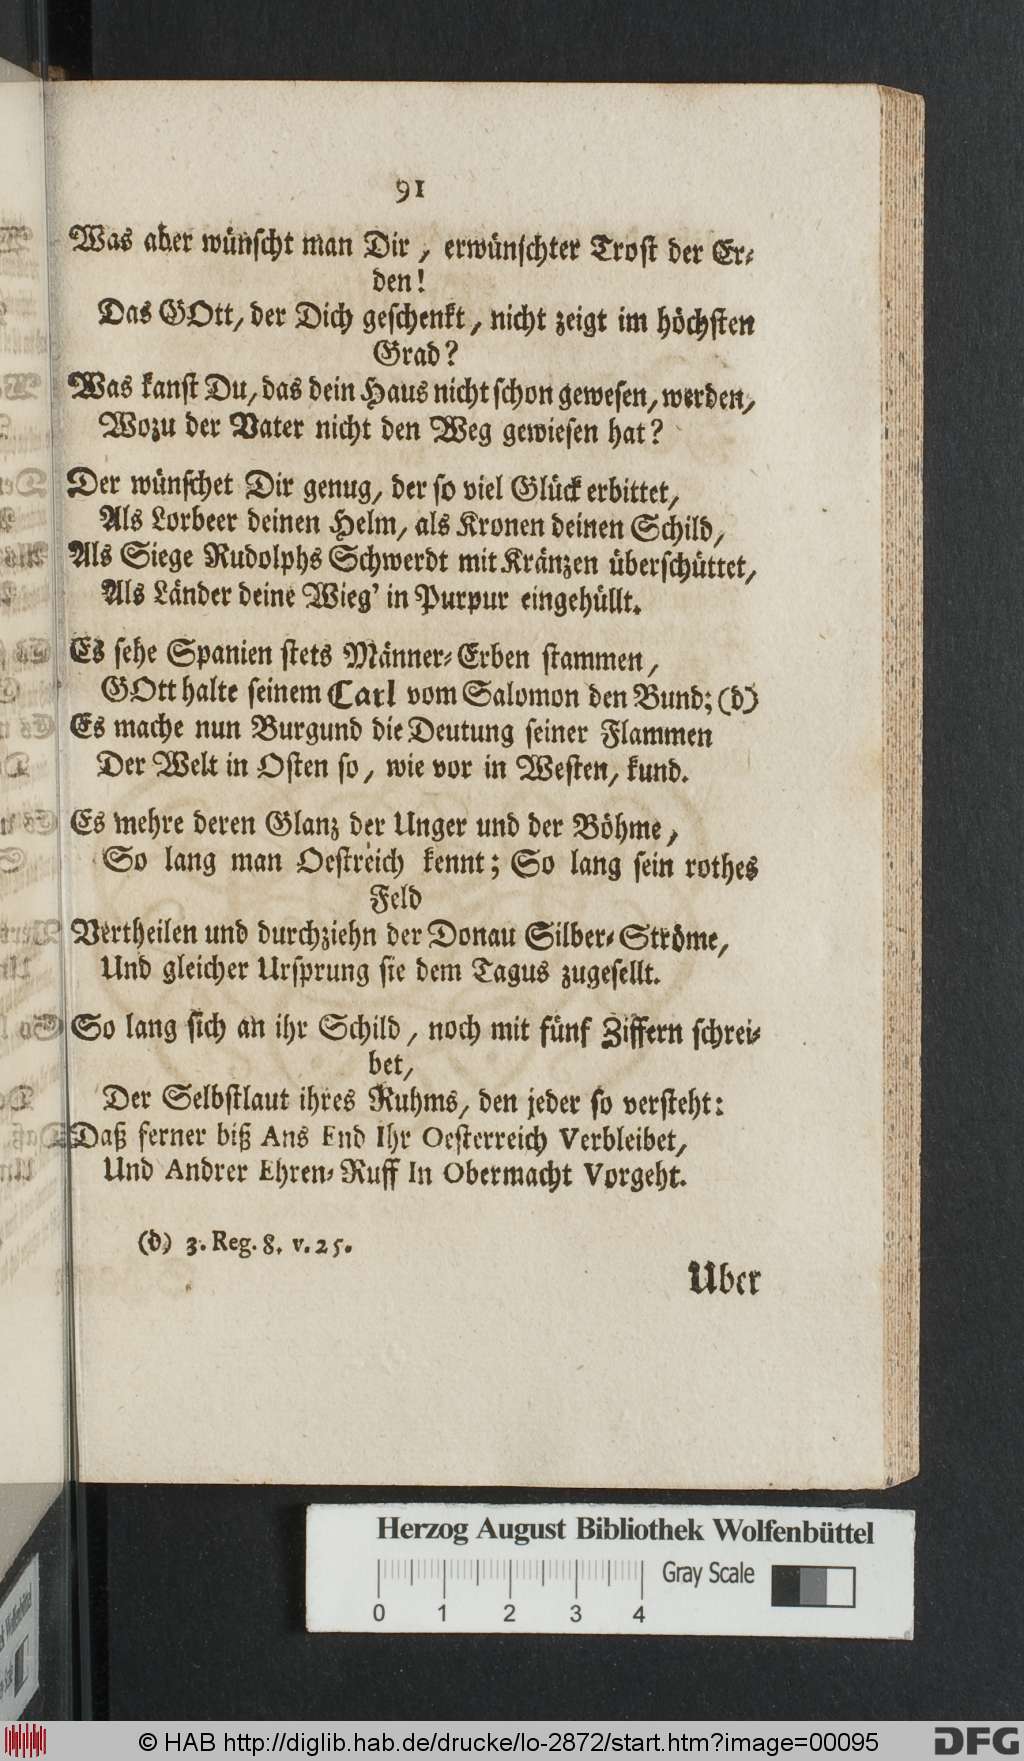 91
Was aber wünscht man Dir, erwünschter Trost der Er-
den!
Das GOtt, der Dich geschenkt, nicht zeigt im höchsten
Grad?
Was kanst Du, das dein Haus nicht schon gewesen, werden,
Wozu der Vater nicht den Weg gewiesen hat?
Der wünschet Dir genug, der so viel Glück erbittet,
Als Lorbeer deinen Helm, als Kronen deinen Schild,
Als Siege Rudolphs Schwerdt mit Kränzen überschüttet,
Als Länder deine Wieg' in Purpur eingehüllt.
Es sehe Spanien stets Männer-Erben stammen,
GOtt halte seinem Carl vom Salomon den Bund; (d)
Es mache nun Burgund die Deutung seiner Flammen
Der Welt in Osten so, wie vor in Westen, kund.
Es mehre deren Glanz der Unger und der Böhme,
So lang man Oestreich kennt; So lang sein rothes
Feld
Vertheilen und durchziehn der Donau Silber-Ströme,
Und gleicher Ursprung sie dem Tagus zugesellt.
So lang sich an ihr Schild, noch mit fünf Ziffern schrei-
bet,
Der Selbstlaut ihres Ruhms, den jeder so versteht:
Daß ferner biß Ans End Ihr Oesterreich Verbleibet,
Und Andrer Ehren-Ruff In Obermacht Vorgeht.
(d) 3. Reg. 8. v. 25.
Uber
Herzog August Bibliothek Wolfenbüttel
Gray Scale
0 1 2 3 4
© HAB http://diglib.hab.de/drucke/lo-2872/start.htm?image=00095
DFG